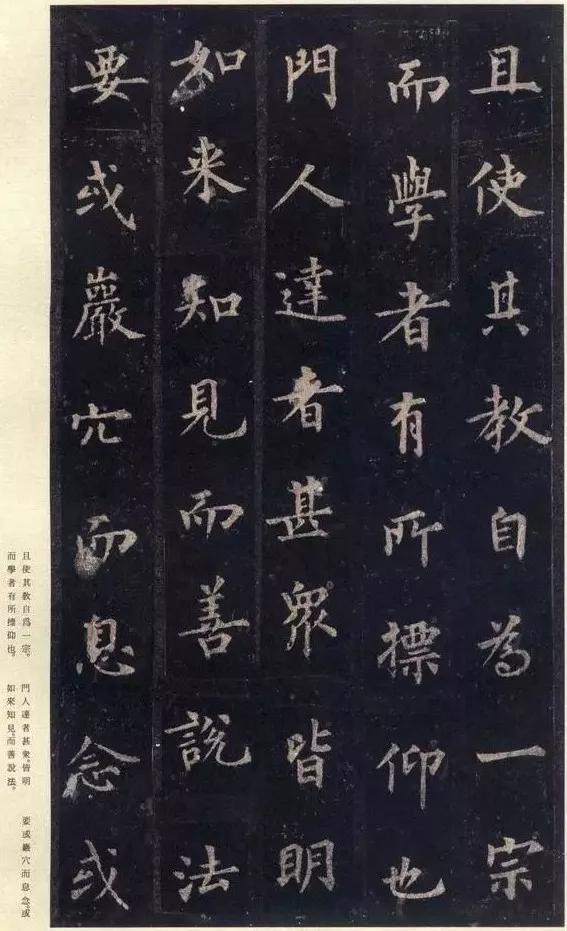 且使其教自為一宗
而學者有所摽仰也
門人達者甚衆皆明
如来知見而善說法
要或巖穴而息念或
且使其敎自爲一宗。
而學者有所摽仰也。
門人達者甚衆。皆明
如來知見。而善說法。
要或巖穴而息念。或